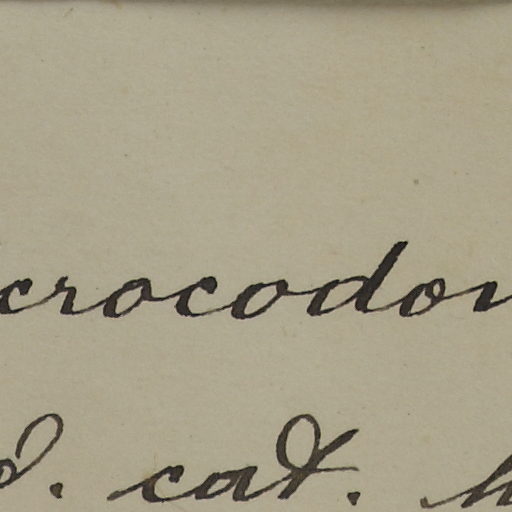 crocodon
d. cat.